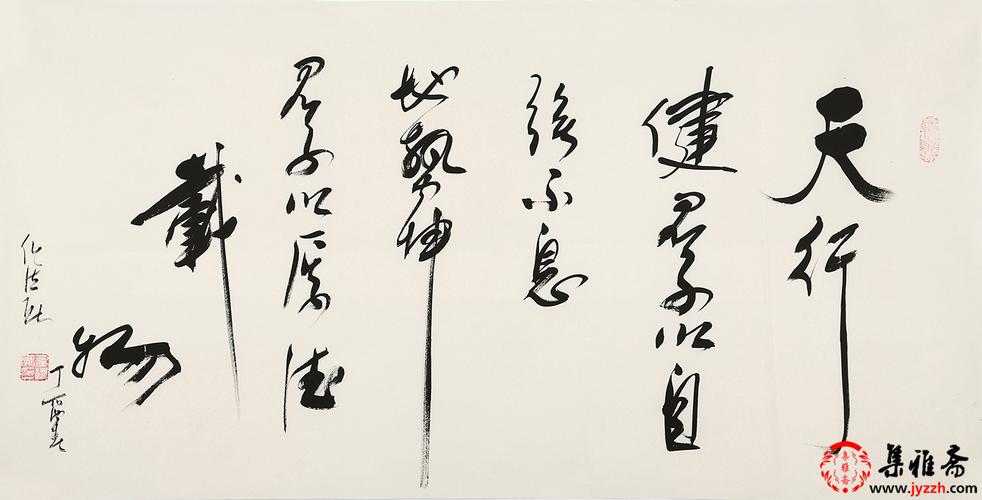 天行
健君子以自
强不息
地势坤
君子以厚德
载
物
集雅斋
www.jyzzh.com